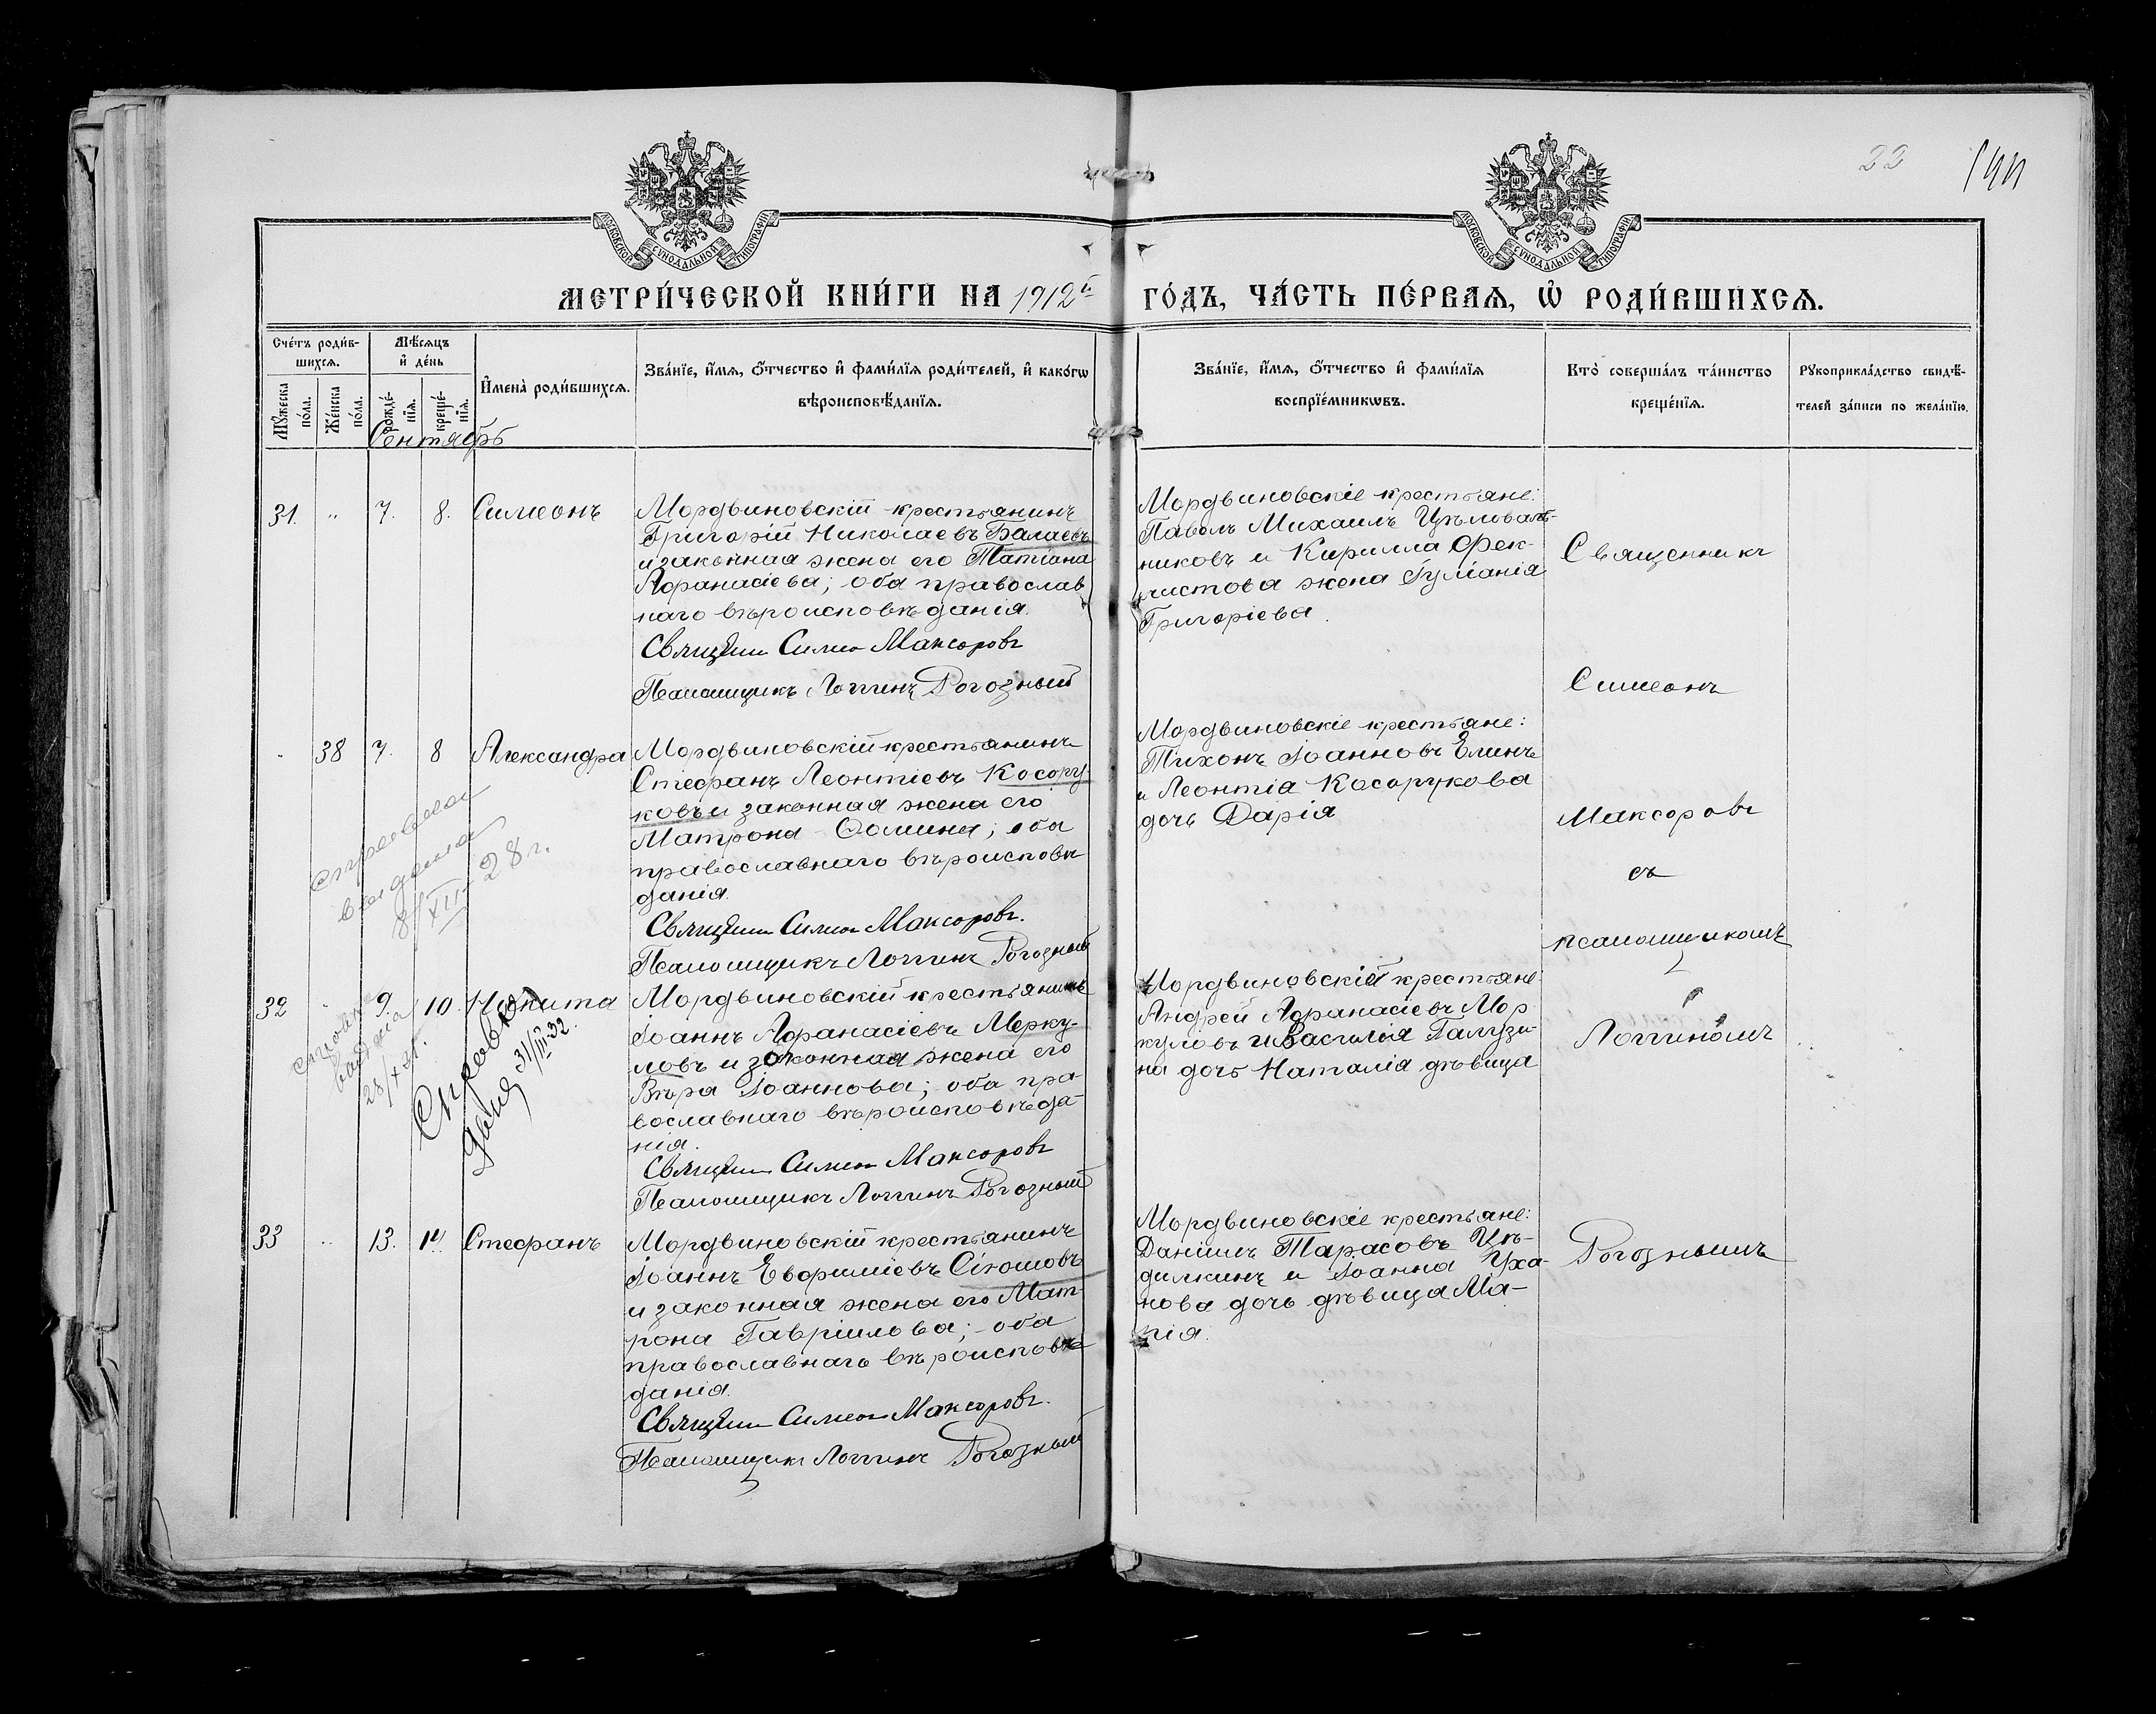 22
МОСКОВСКОЙ СУНОДАЛЬНОЙ ТИПОГРАФІИ
МОСКОВСКОЙ СУНОДАЛЬНОЙ ТИПОГРАФІИ
МЕТРИ́ЧЕСКОЙ КНИ́ГИ НА 1912й ГО́ДЪ, ЧА́СТЬ ПЕ́РВАѦ, Ѡ҆ РОДИ́ВШИХСѦ.
Сче́тъ роди́в-
шихсѧ.
Мꙋ́жеска по́ла.
Же́нска по́ла.
Мѣ́сѧцъ
и҆ де́нь
рожде́-
нїѧ.
креще́-
нїѧ.
И҆мена̀ роди́вшихсѧ.
Зва́нїе, и҆́мѧ, ѻ҆́тчество и҆ фами́лїѧ роди́телей, и҆ како́гѡ
вѣроисповѣ́данїѧ.
Зва́нїе, и҆́мѧ, ѻ҆́тчество и҆ фами́лїѧ
воспрїе́мникѡвъ.
Кто̀ соверша́лъ та́инство
креще́нїѧ.
Рꙋкоприкла́дство свидѣ́-
телей за́писи по жела́нїю.
Сентябрь
31. " 7. 8. Симеонъ
Мордвиновскій крестьянинъ
Григорій Николаевъ Балаевъ
и законная жена его Татіана
Афанасіева; оба православ
наго вѣроисповѣданія.
Симеон Максоровъ
Псаломщикъ Логгинъ Рогозный
Мордвиновскіе крестьяне:
Павелъ Михаилъ Цѣловаль-
никовъ и Кирилла Фек-
листова жена Іуліанія
Григоріева.
38 7. 8 Александра
Мордвиновскій крестьянинъ
Стефанъ Леонтіевъ Косору-
ковъ и законная жена его
Матрона Фомина; оба
православнаго вѣроисповѣ
данія.
Симеон Максоровъ.
Псаломщикъ Логгинъ Рогозный
Мордвиновскіе крестьяне:
Тихонъ Іоанновъ Елинъ
и Леонтіа Косорукова
дочь Дарія
справка
выдана
8/XII-28 г.
32 " 9. 10. Никита
Мордвиновскій крестьянинъ
Іоаннъ Афанасіевъ Мерку-
ловъ и законная жена его
Вѣра Іоаннова; оба пра-
вославнаго вѣроисповѣда-
нія.
Симеон Максоровъ
Псаломщикъ Логгинъ Рогозный
Мордвиновскіе крестьяне:
Андрей Афанасіевъ Мер
куловъ и Василія Галузи-
на дочь Наталія дѣвица
справка
выдана
Справка
дана 31/III-32.
33 " 13. 14. Стефанъ
Мордвиновскій крестьянинъ
Іоаннъ Евфиміевъ Сікошовъ
и законная жена его Мат-
рона Гавріилова; оба
православнаго вѣроисповѣ
данія.
Симеон Максоровъ.
Псаломщикъ Логгинъ Рогозный
Мордвиновскіе крестьяне:
Даніилъ Тарасовъ Цѣ-
дилкинъ и Іоанна Уха-
нова дочь дѣвица Ма-
рія.
Священникъ
Симеонъ
Максоровъ
съ
псаломщикомъ
Логгиномъ
Рогознымъ